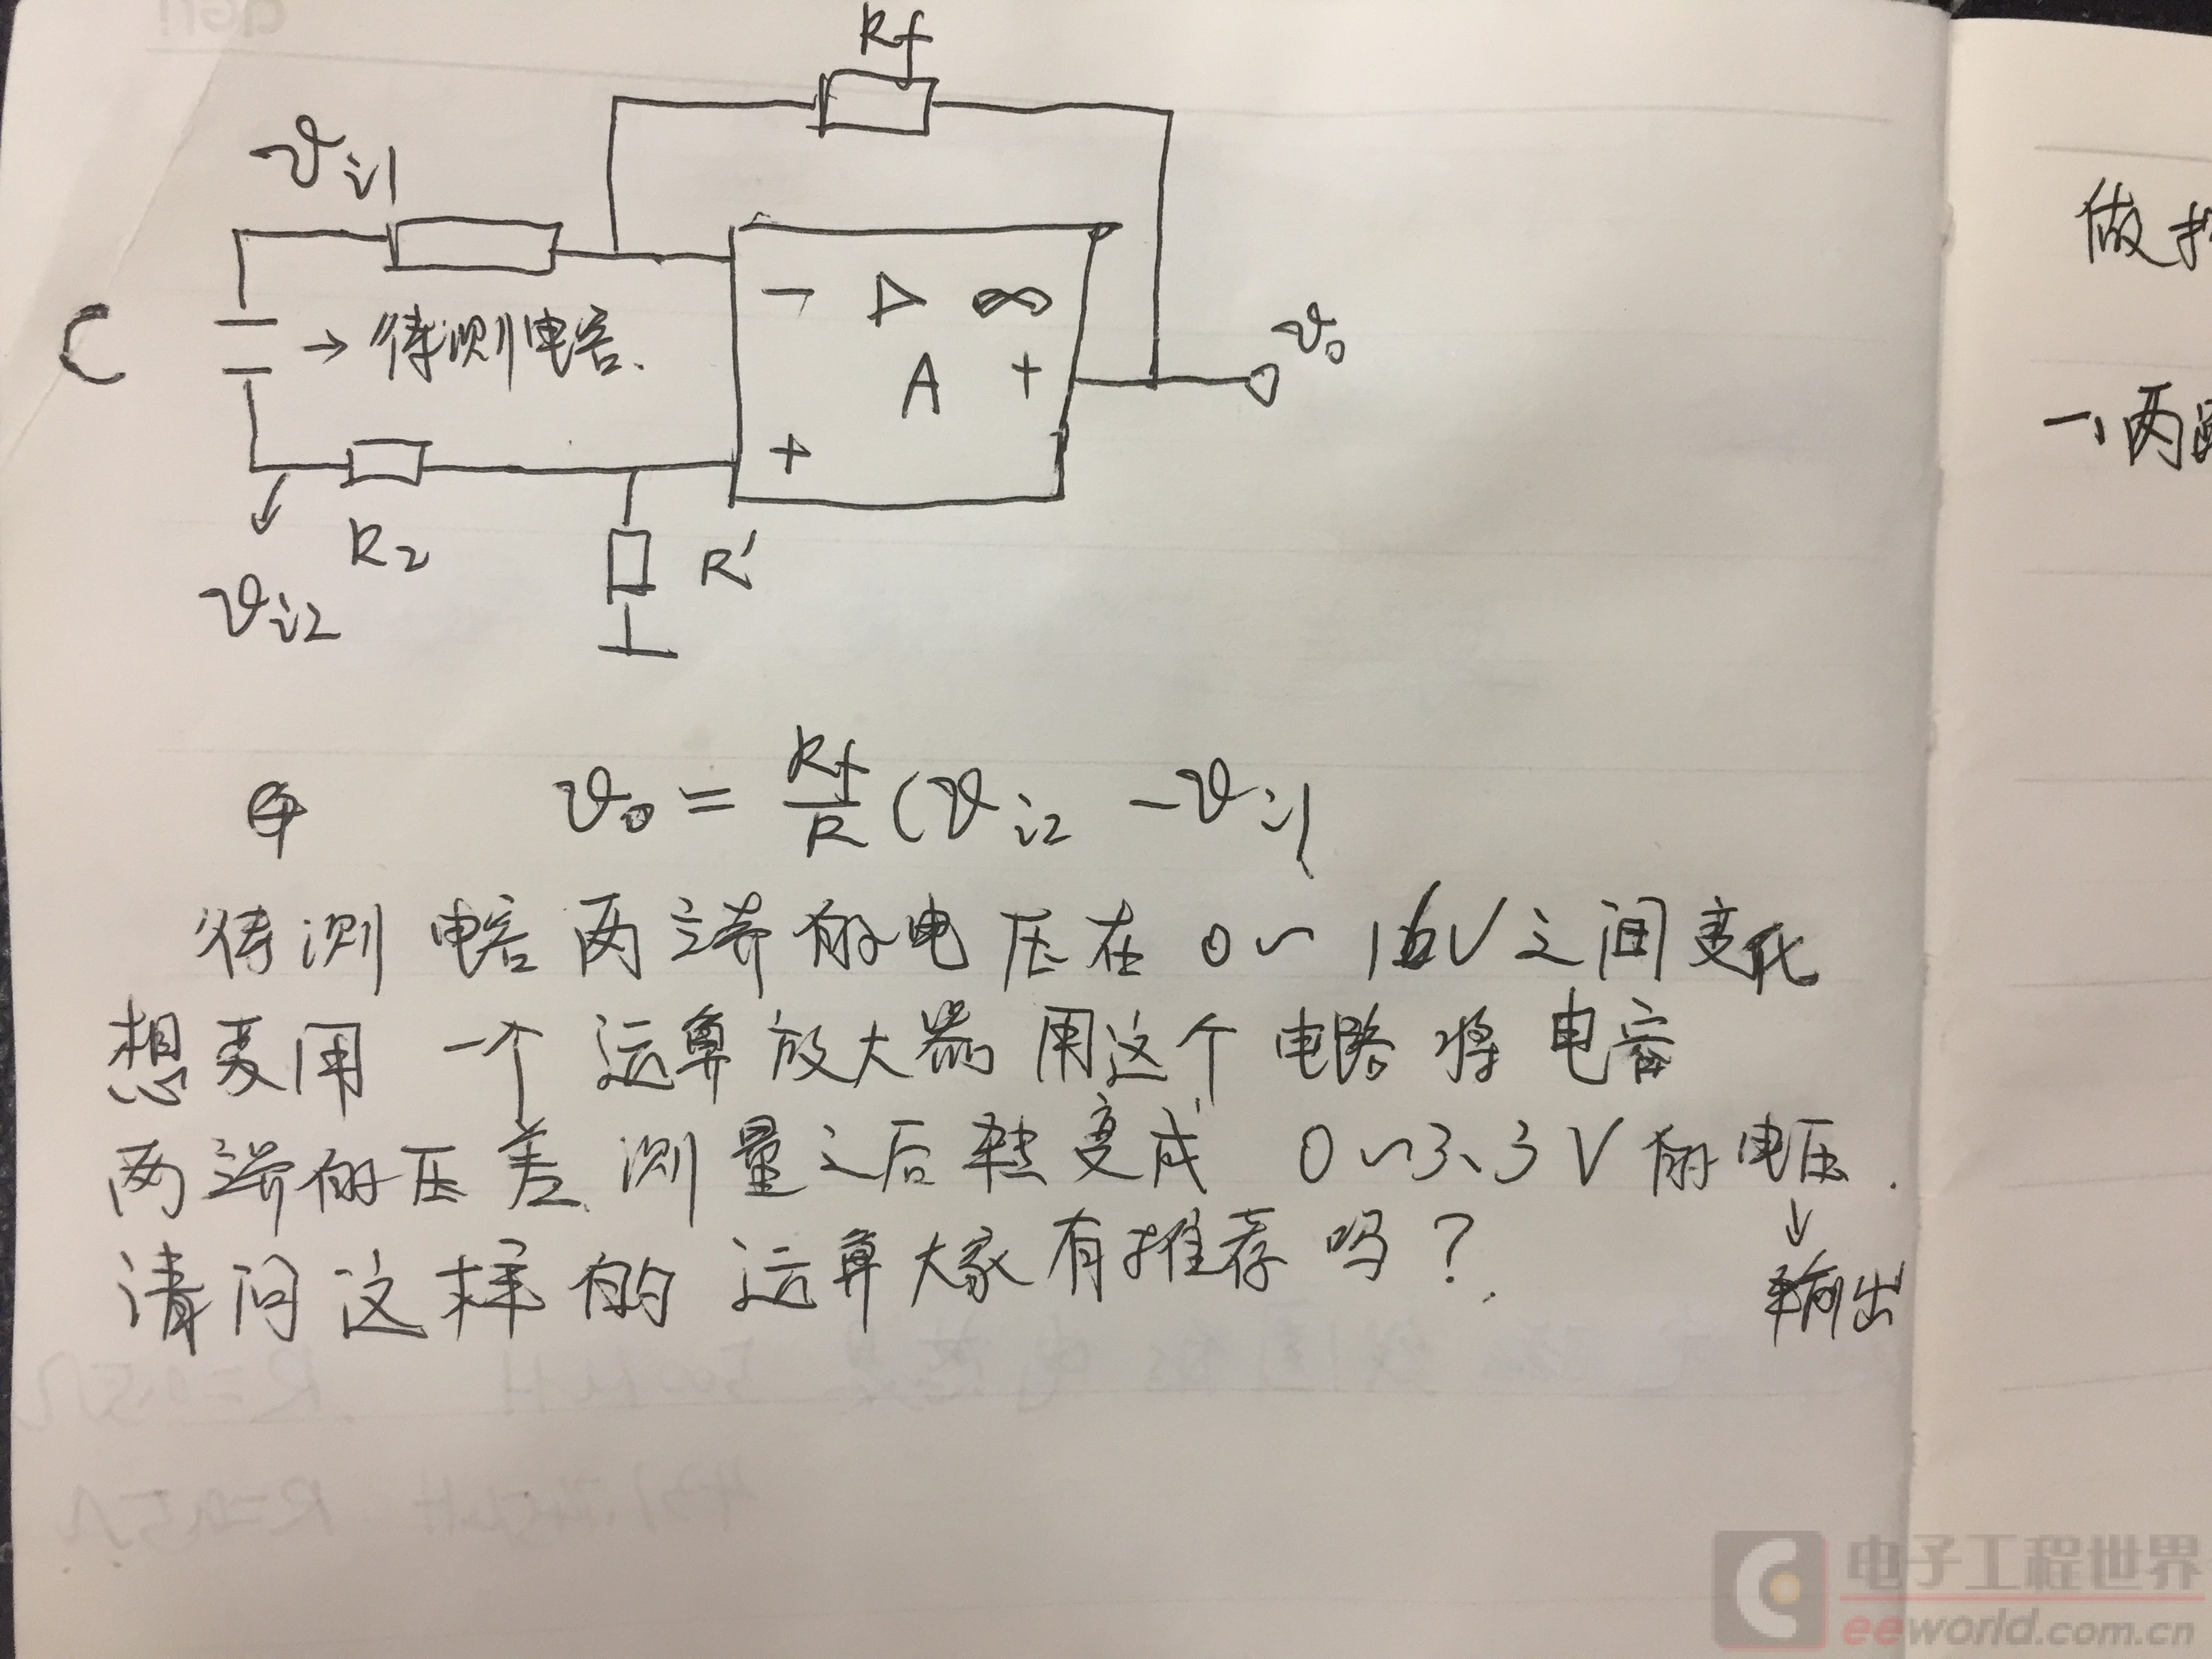 Rf
vi1
C
→ 待测电容.
- ▷ ∞
A +
+
vo
R2
R'
vi2
vo = Rf/R (vi2 - vi1
待测电容两端的电压在0~16V之间变化
想要用一个运算放大器用这个电路将电容
两端的压差测量之后转变成 0~3.3V的电压.
↓
输出
请问这样的运算大家有推荐吗?
做
一、两
R=0.5Ω
电子工程世界
eeworld.com.cn